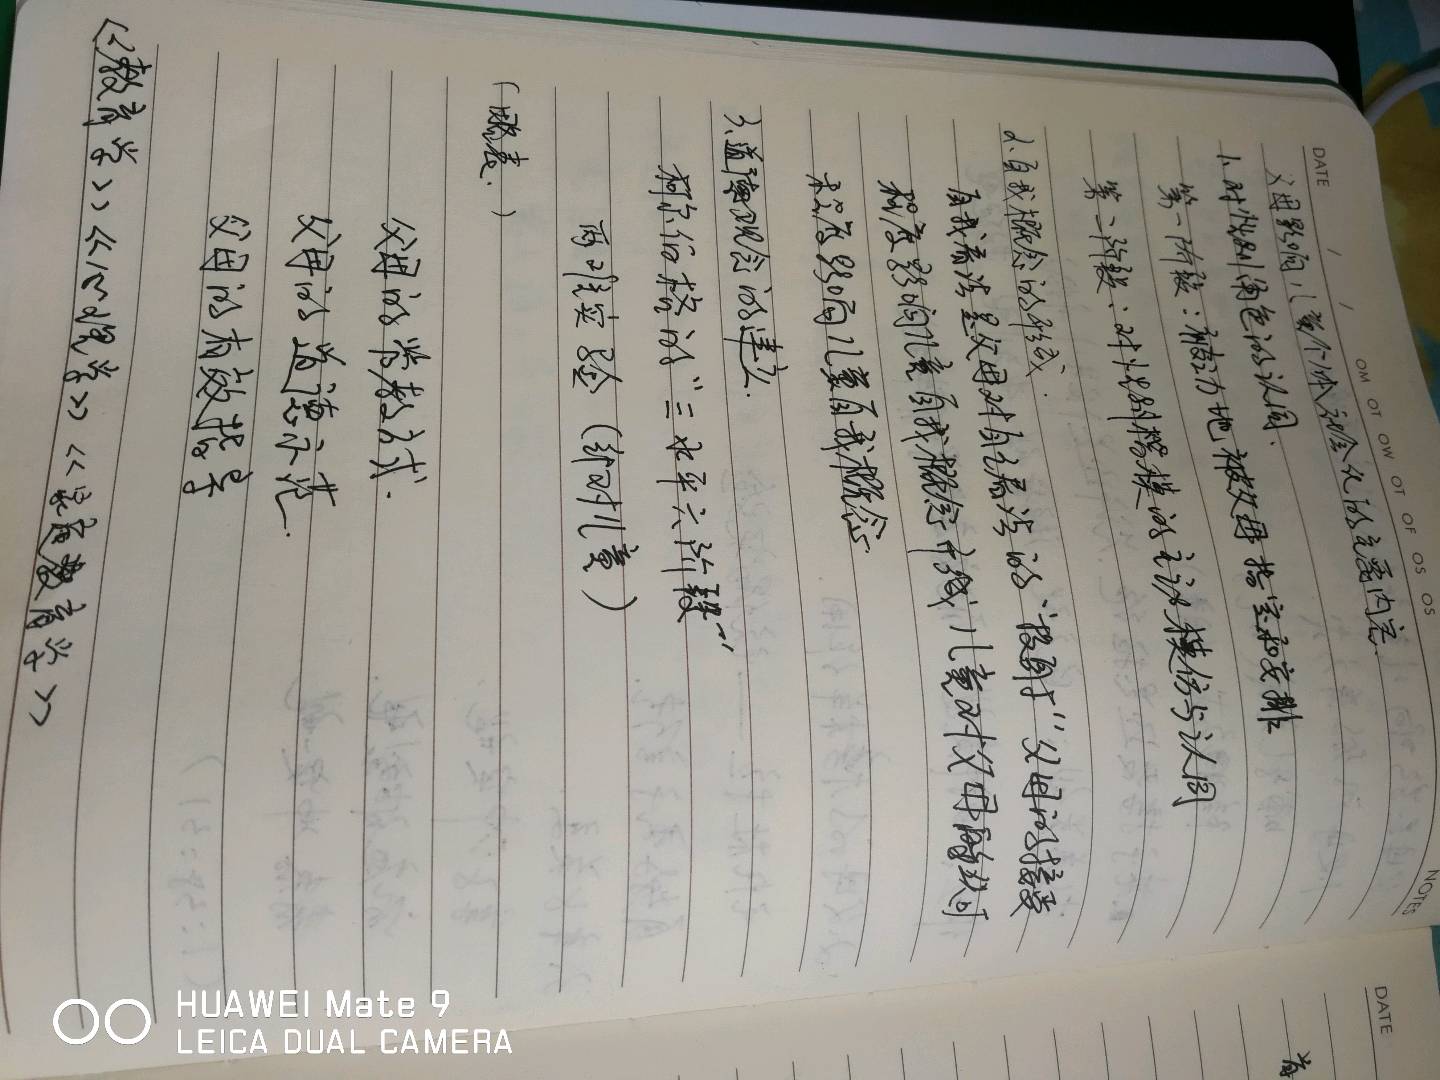 DATE / /
OM OT OW OT OF OS OS
NOTES
父母影响儿童个体社会化的主要内容.
1.对性别角色的认同.
第一阶段:被动地被父母指定和安排
第二阶段:对性别楷模的主动模仿与认同
2.自我概念的形成.
自我看法是父母对自己看法的"投射"父母的接受
程度影响儿童自我概念形成,儿童对父母的
程度影响儿童自我概念
3.道德观念的建立.
柯尔伯格的"三水平六阶段"
两难实验(针对儿童)
父母的常教方式.
父母的道德示范.
父母的有效指导
《教育学》《心理学》《家庭教育学》
DATE
HUAWEI Mate 9
LEICA DUAL CAMERA